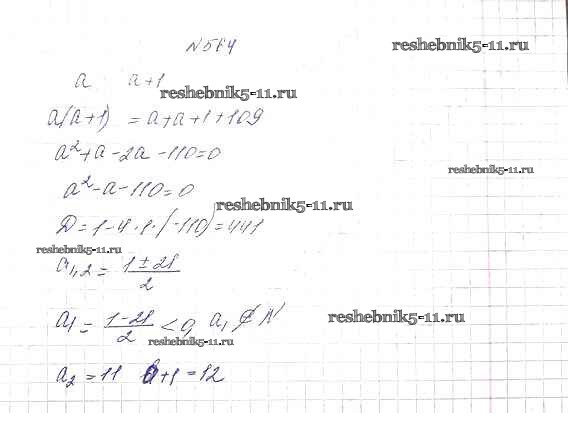 N564 reshebnik5-11.ru
a a+1
reshebnik5-11.ru
a(a+1) = a+a+1+109
a²+a-2a-110=0
reshebnik5-11.ru
a²-a-110=0
reshebnik5-11.ru
D=1-4·1·(-110)=441
reshebnik5-11.ru
a1,2 = (1±21)/2
a1 = (1-21)/2 < 0, a1 ∉ N reshebnik5-11.ru
reshebnik5-11.ru
a2 = 11 a+1 = 12